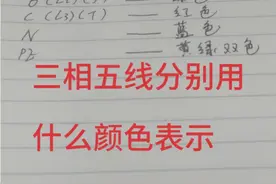 B (L2) (S) ——
C (L3) (T) —— 红色
N —— 蓝色
PE —— 黄绿双色
三相五线分别用
什么颜色表示